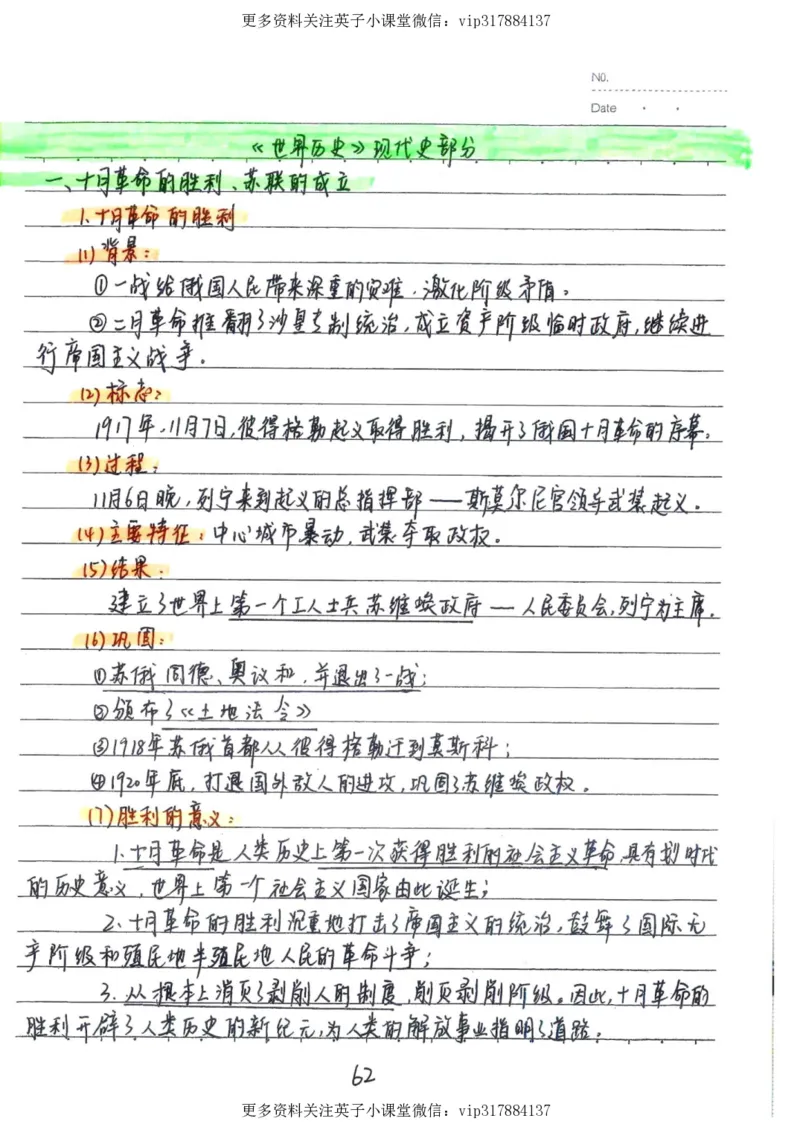 更多资料关注英子小课堂微信：vip317884137
No.
Date
《世界历史》现代史部分
一、十月革命的胜利、苏联的成立
1.十月革命的胜利
(1)背景：
①一战给俄国人民带来深重的灾难，激化阶级矛盾。
②二月革命推翻了沙皇专制统治，成立资产阶级临时政府，继续进
行帝国主义战争。
(2)标志：
1917年，11月7日，彼得格勒起义取得胜利，揭开了俄国十月革命的序幕。
(3)过程：
11月6日晚，列宁来到起义的总指挥部——斯莫尔尼宫领导武装起义。
(4)主要特征：中心城市暴动，武装夺取政权。
(5)结果：
建立了世界上第一个工人士兵苏维埃政府——人民委员会，列宁为主席。
(6)巩固：
①苏俄同德、奥议和，并退出了一战；
②颁布了《土地法令》
③1918年苏俄首都从彼得格勒迁到莫斯科；
④1920年底，打退国外敌人的进攻，巩固了苏维埃政权。
(7)胜利的意义：
1.十月革命是人类历史上第一次获得胜利的社会主义革命，具有划时代
的历史意义，世界上第一个社会主义国家由此诞生；
2.十月革命的胜利沉重地打击了帝国主义的统治，鼓舞了国际无
产阶级和殖民地半殖民地人民的革命斗争；
3.从根本上消灭了剥削人的制度，削灭剥削阶级。因此，十月革命的
胜利开辟了人类历史的新纪元，为人类的解放事业指明了道路。
62
更多资料关注英子小课堂微信：vip317884137